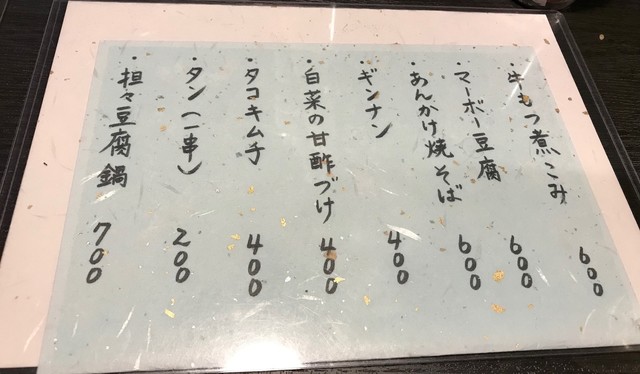 ・牛もつ煮こみ 600
・マーボー豆腐 600
・あんかけ焼そば 600
・ギンナン 400
・白菜の甘酢づけ 400
・タコキムチ 400
・タン(一串) 200
・担々豆腐鍋 700